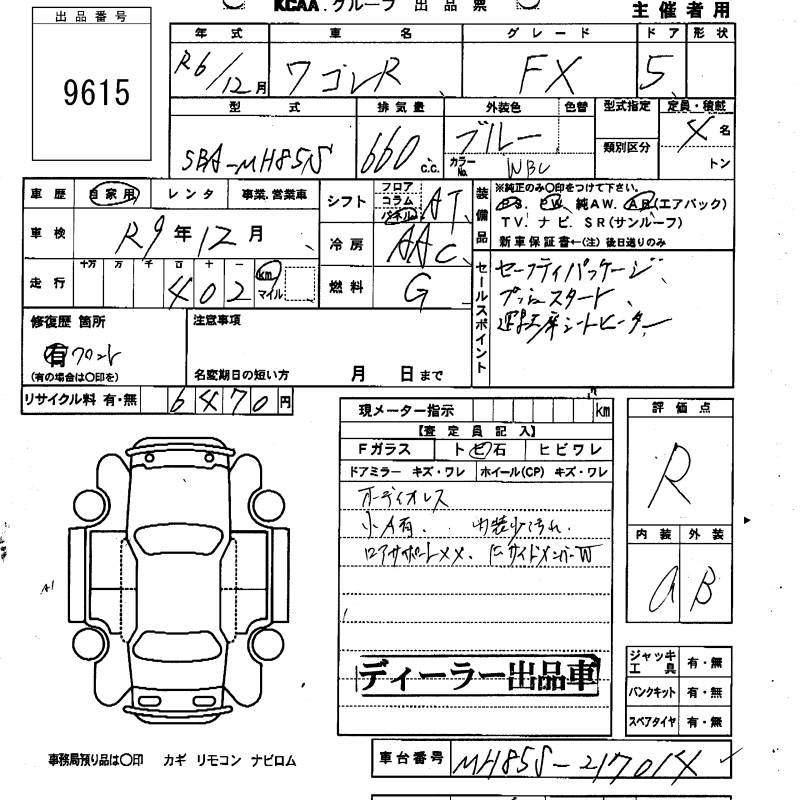 KCAA.グループ 出品票 主催者用
出品番号
9615
年式 車名 グレード ドア 形状
R6/12月 ワゴンR FX 5
型式 排気量 外装色 色替 型式指定 定員・積載
5BA-MH85S 660c.c. ブルー 4名
カラーNo. WBC 類別区分 トン
車歴 自家用 レンタ 事業.営業車
シフト フロア コラム パネル AT
装備品
※純正のみ〇印をつけて下さい。
PS. PW. 純AW. AB(エアバック)
TV. ナビ. SR(サンルーフ)
新車保証書←(注) 後日送りのみ
車検 R9年12月
冷房 AAC
走行 十万 万 千 百 十 一
402 km マイル
燃料 G
セールスポイント
セーフティパッケージ、
プッシュスタート、
運転席シートヒーター
修復歴 箇所
有 フロント
(有の場合は〇印を)
注意事項
名変期日の短い方 月 日まで
リサイクル料 有・無 6470円
現メーター指示 km
【査定員記入】
Fガラス ト ビ 石 ヒビワレ
ドアミラー キズ・ワレ ホイール(CP) キズ・ワレ
オーディオレス
小A有. 内装少汚れ.
ロアサポートXX. サイドメンバーW
評価点
R
内装 外装
a B
A1
ディーラー出品車
ジャッキ工具 有・無
パンクキット 有・無
スペアタイヤ 有・無
事務局預り品は〇印 カギ リモコン ナビロム
車台番号 MH85S-217014